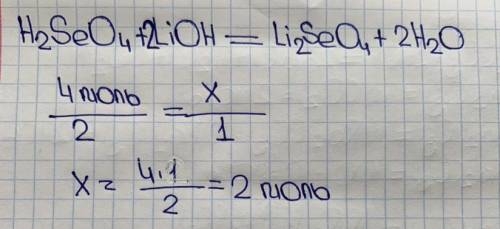 H₂SeO₄+2LiOH = Li₂SeO₄ + 2H₂O
4 моль / 2 = X / 1
X = 4·1 / 2 = 2 моль